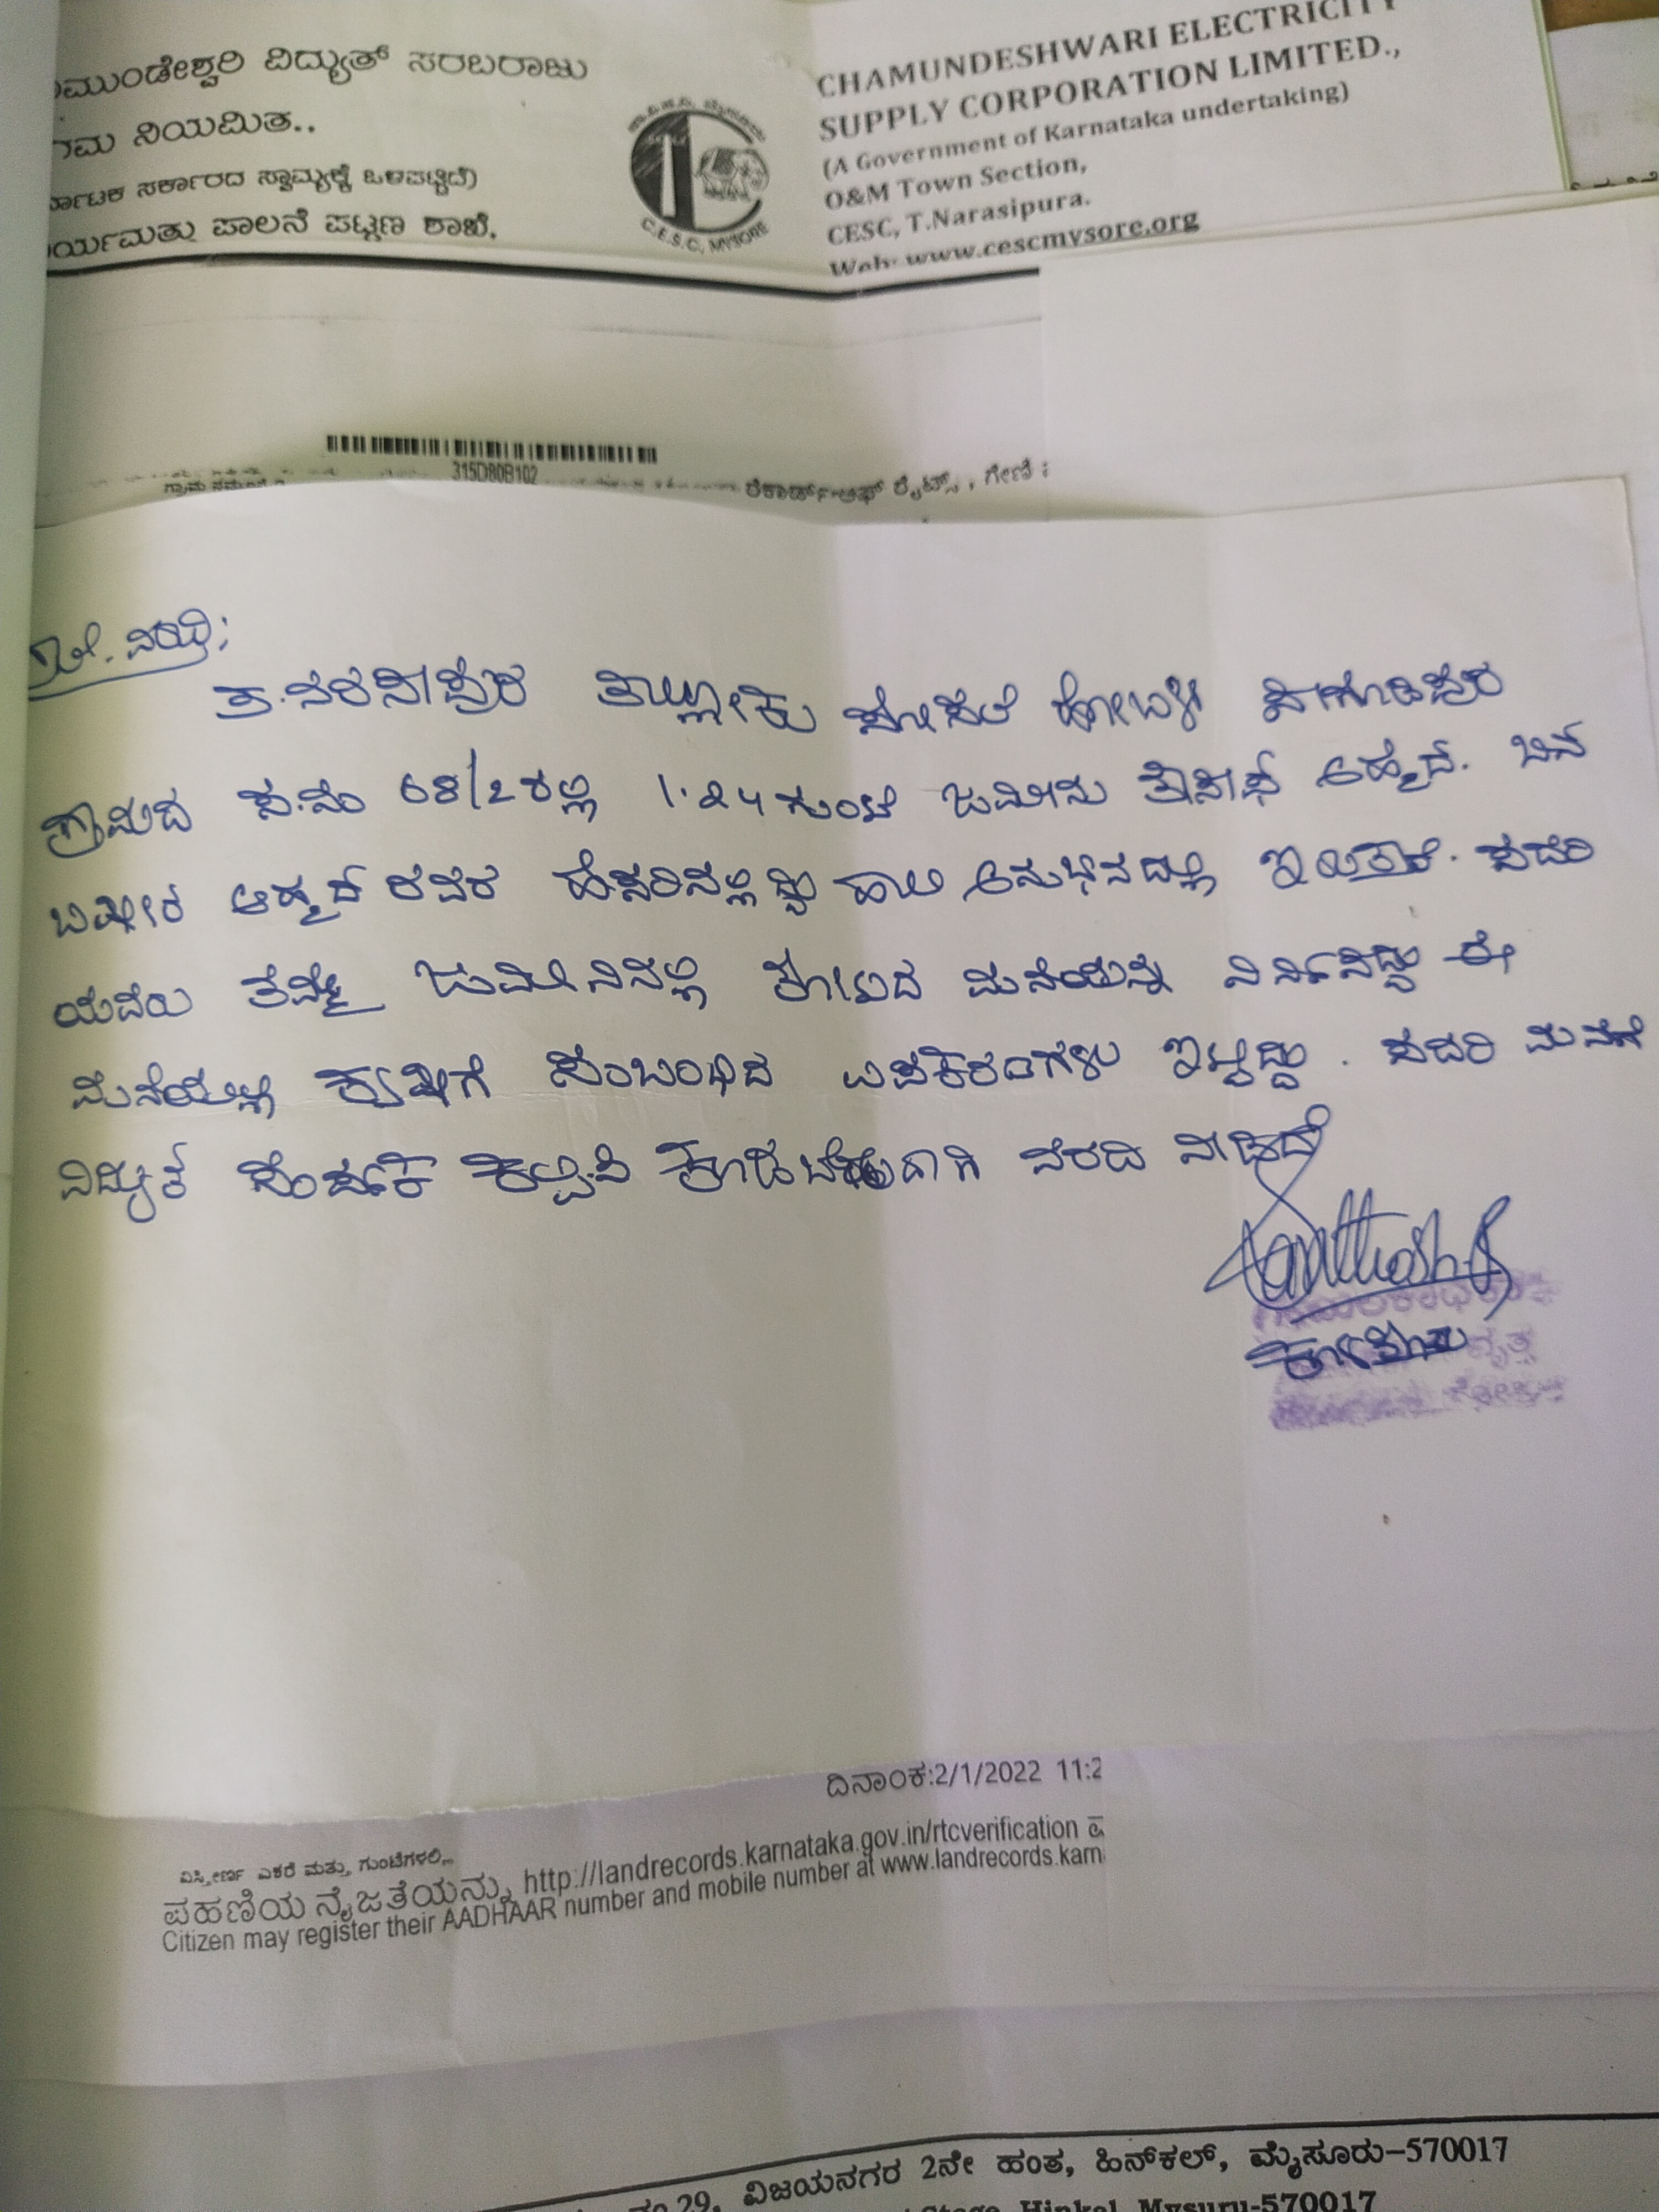 ಮುಂಡೇಶ್ವರಿ ವಿದ್ಯುತ್ ಸರಬರಾಜು
ನಿಯಮಿತ..
ಸರ್ಕಾರದ ಸ್ವಾಮ್ಯಕ್ಕೆ ಒಳಪಟ್ಟಿದೆ)
ರ್ಯಮತ್ತು ಪಾಲನೆ ಪಟ್ಟಣ ಶಾಖೆ.
C.E.S.C, MYSORE
CHAMUNDESHWARI ELECTRICITY
SUPPLY CORPORATION LIMITED.,
(A Government of Karnataka undertaking)
O&M Town Section,
CESC, T.Narasipura.
Web: www.cescmysore.org
315D80B102
ರೆಕಾರ್ಡ್ ಆಫ್ ರೈಟ್ಸ್ , ಗೇಣಿ
ತ.ನರಸೀಪುರ ತಾಲ್ಲೋಕು ಸೋಸಲೆ ಹೋಬಳಿ
ಗ್ರಾಮದ ಸ.ನಂ 68/2ರಲ್ಲಿ 1.24ಗುಂಟೆ ಜಮೀನು ಅಹ್ಮದ್. ಬಿನ್
ಬಷೀರ ಅಹ್ಮದ್ ರವರ ಹೆಸರಿನಲ್ಲಿದ್ದು ಹಾಲಿ ಅನುಭವದಲ್ಲಿ ಇರುತ್ತಾರೆ. ಸದರಿ
ಯವರು ತಮ್ಮ ಜಮೀನಿನಲ್ಲಿ ಮನೆಯನ್ನು ನಿರ್ಮಿಸಿದ್ದು ಈ
ಮನೆಯಲ್ಲಿ ಕೃಷಿಗೆ ಸಂಬಂಧಿದ ಉಪಕರಣಗಳು ಇಟ್ಟಿದ್ದು. ಸದರಿ ಮನೆಗೆ
ವಿದ್ಯುತ ಸಂರ್ಪಕ ಕಲ್ಪಿಸಿ ಕೊಡಬೇಕಾಗಿ ವರದಿ ನೀಡಿದೆ
ದಿನಾಂಕ:2/1/2022 11:2
ವಿಸ್ತೀರ್ಣ ಎಕರೆ ಮತ್ತು ಗುಂಟೆಗಳಲ್ಲಿ
ಪಹಣಿಯ ನೈಜತೆಯನ್ನು http://landrecords.karnataka.gov.in/rtcverification
Citizen may register their AADHAAR number and mobile number at www.landrecords.karn
ನಂ.29, ವಿಜಯನಗರ 2ನೇ ಹಂತ, ಹಿನ್‌ಕಲ್, ಮೈಸೂರು-570017
Stage, Hinkal, Mysuru-570017